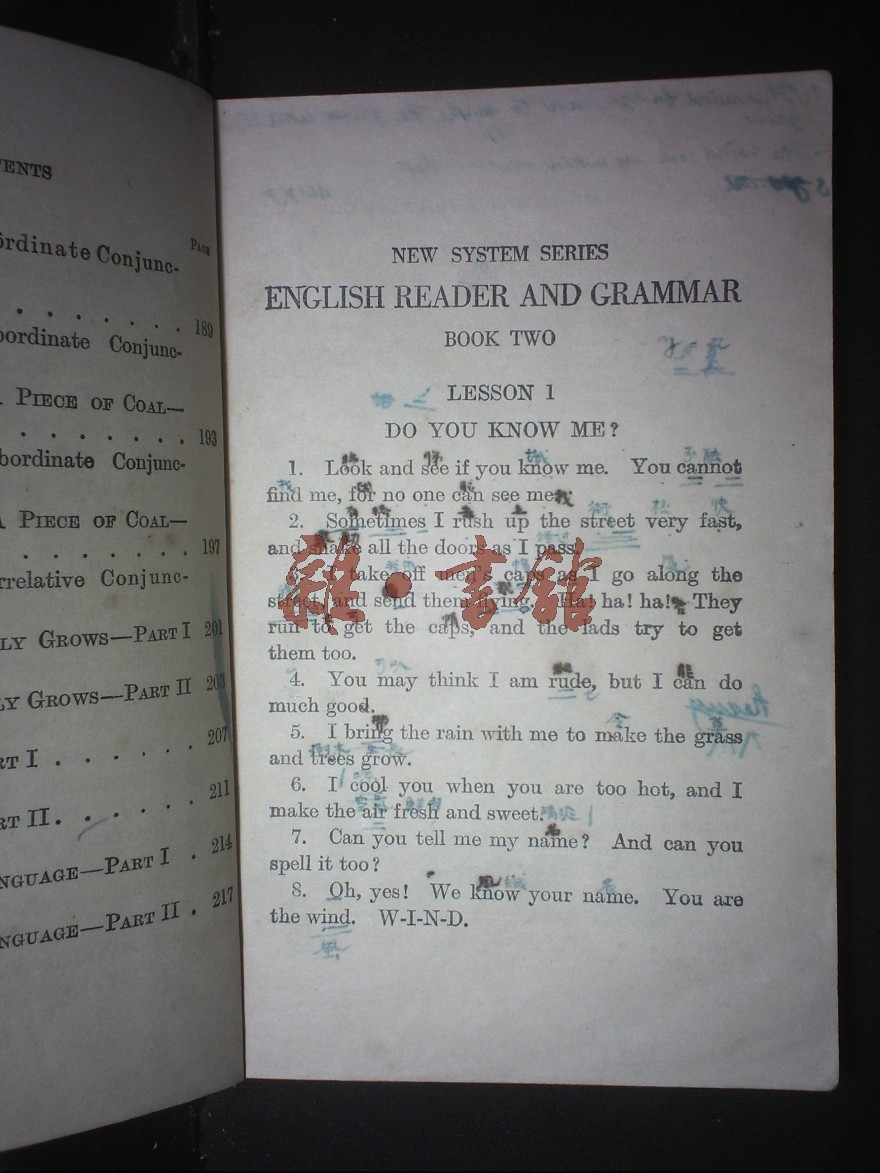 TENTS
PAGE
ordinate Conjunc-
. . . . . . . 189
ordinate Conjunc-
PIECE OF COAL—
. . . . . . . 193
bordinate Conjunc-
A PIECE OF COAL—
. . . . . . . 197
rrelative Conjunc-
LY GROWS—PART I 201
LY GROWS—PART II 203
RT I . . . . . . 207
RT II . . . . . . 211
NGUAGE—PART I . 214
NGUAGE—PART II . 217
NEW SYSTEM SERIES
ENGLISH READER AND GRAMMAR
BOOK TWO
LESSON 1
DO YOU KNOW ME?
1. Look and see if you know me. You cannot
find me, for no one can see me.
我
2. Sometimes I rush up the street very fast,
and shake all the doors as I pass.
3. I take off men's caps as I go along the
street, and send them flying. Ha! ha! ha! They
run to get the caps, and the lads try to get
them too.
4. You may think I am rude, but I can do
much good.
5. I bring the rain with me to make the grass
and trees grow.
6. I cool you when you are too hot, and I
make the air fresh and sweet.
7. Can you tell me my name? And can you
spell it too?
8. Oh, yes! We know your name. You are
the wind. W-I-N-D.
風
雜·書館